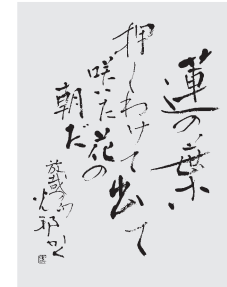 蓮の葉
押しわけて出て
咲いた花の
朝だ
放哉の句